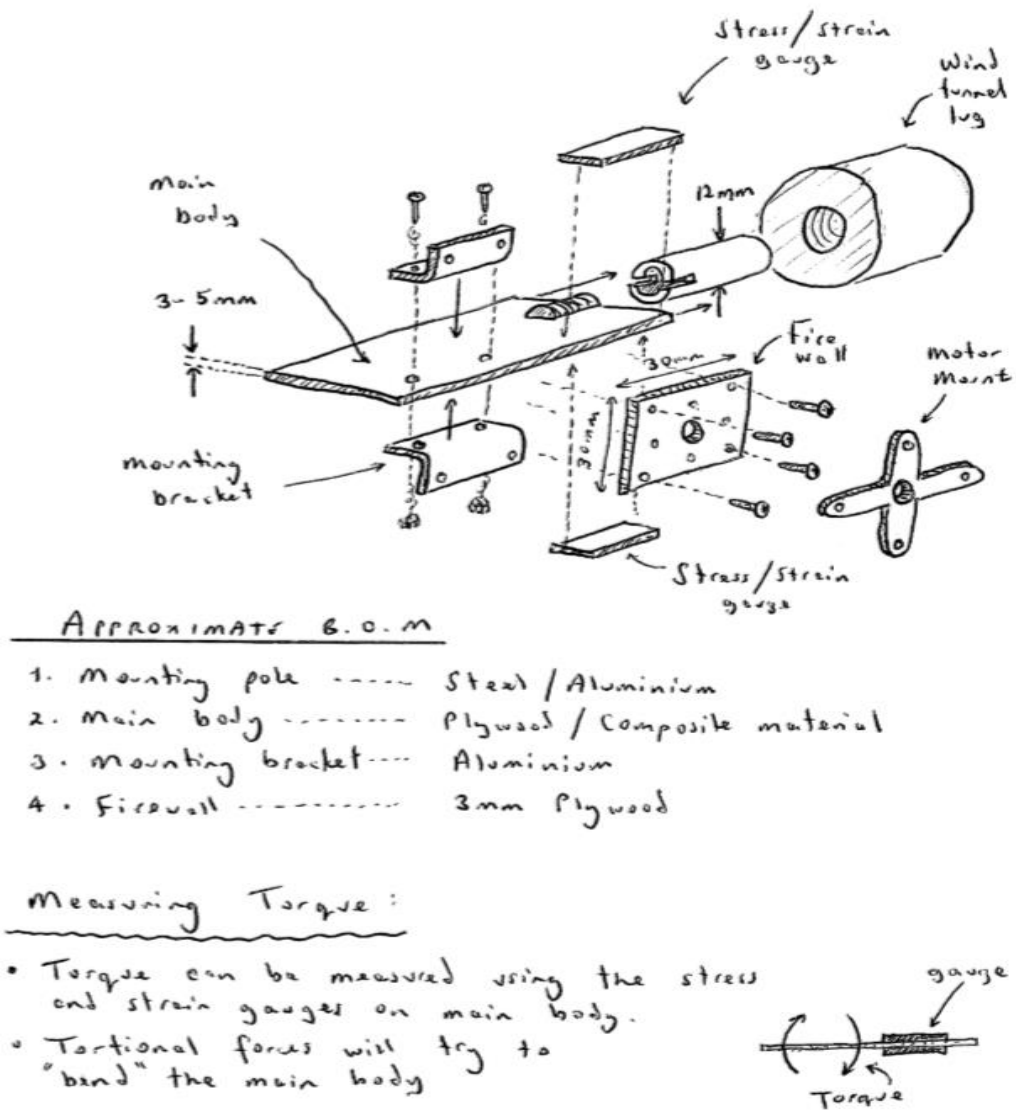 Stress/strain
gauge
Wind
tunnel
lug
main
body
12mm
3-5mm
Fire
wall
30mm
motor
mount
30mm
mounting
bracket
Stress/strain
gauge
APPROXIMATE B.O.M
1. Mounting pole ----- Steel / Aluminium
2. Main body -------- Plywood / Composite material
3. Mounting bracket ---- Aluminium
4. Firewall ---------- 3mm Plywood
Measuring Torque:
• Torque can be measured using the stress
and strain gauges on main body.
• Tortional forces will try to
"bend" the main body
gauge
Torque